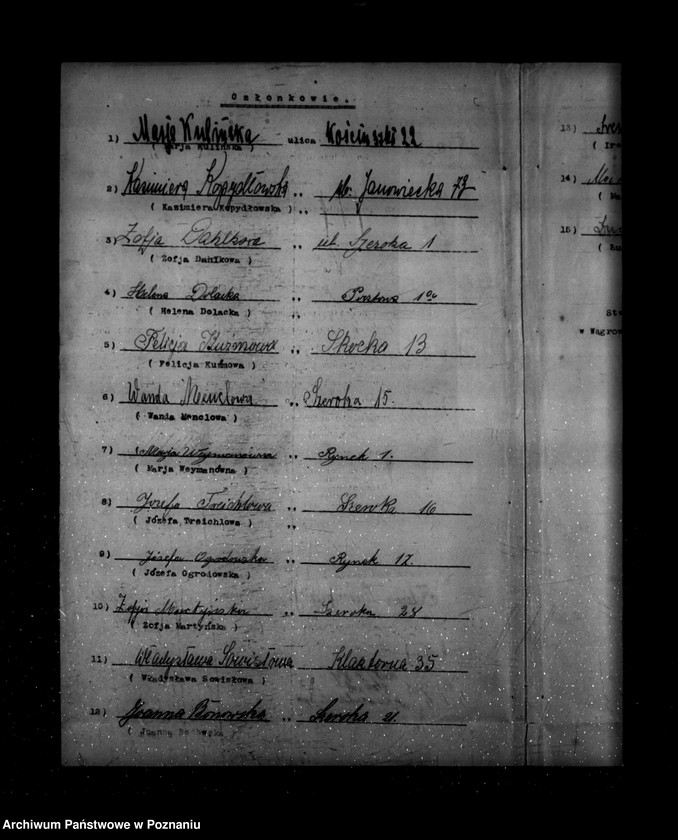 Członkowie.
1) Marja Kulińska ulica Kościuszki 22
( Marja Kulińska )
2) Kazimiera Kopydłowska ,, ul. Janowiecka 79
( Kazimiera Kopydłowska ) ,,
3) Zofja Dahlkowa ,, ul. Szeroka 1
( Zofja Dahlkowa )
4) Helena Dolacka ,, Pocztowa
( Helena Dolacka ) ,,
5) Felicja Kuźmowa ,, Skocka 13
( Felicja Kuźmowa )
6) Wanda Menclowa ,, Szeroka 15.
( Wanda Menclowa )
7) Marja Weymanówna ,, Rynek 1.
( Marja Weymanówna )
8) Józefa Treichlowa ,, Szeroka 16
( Józefa Treichlowa ) ,,
9) Józefa Ogrodowska ,, Rynek 12.
( Józefa Ogrodowska )
10) Zofja Martyńska ,, Szeroka 28
( Zofja Martyńska )
11) Władysława Sowisłowa Klasztorna 35
( Władysława Sowisłowa )
12) Joanna ,, Szeroka 21.
( Joanna
13)
14)
15)
w Wągrow
Archiwum Państwowe w Poznaniu